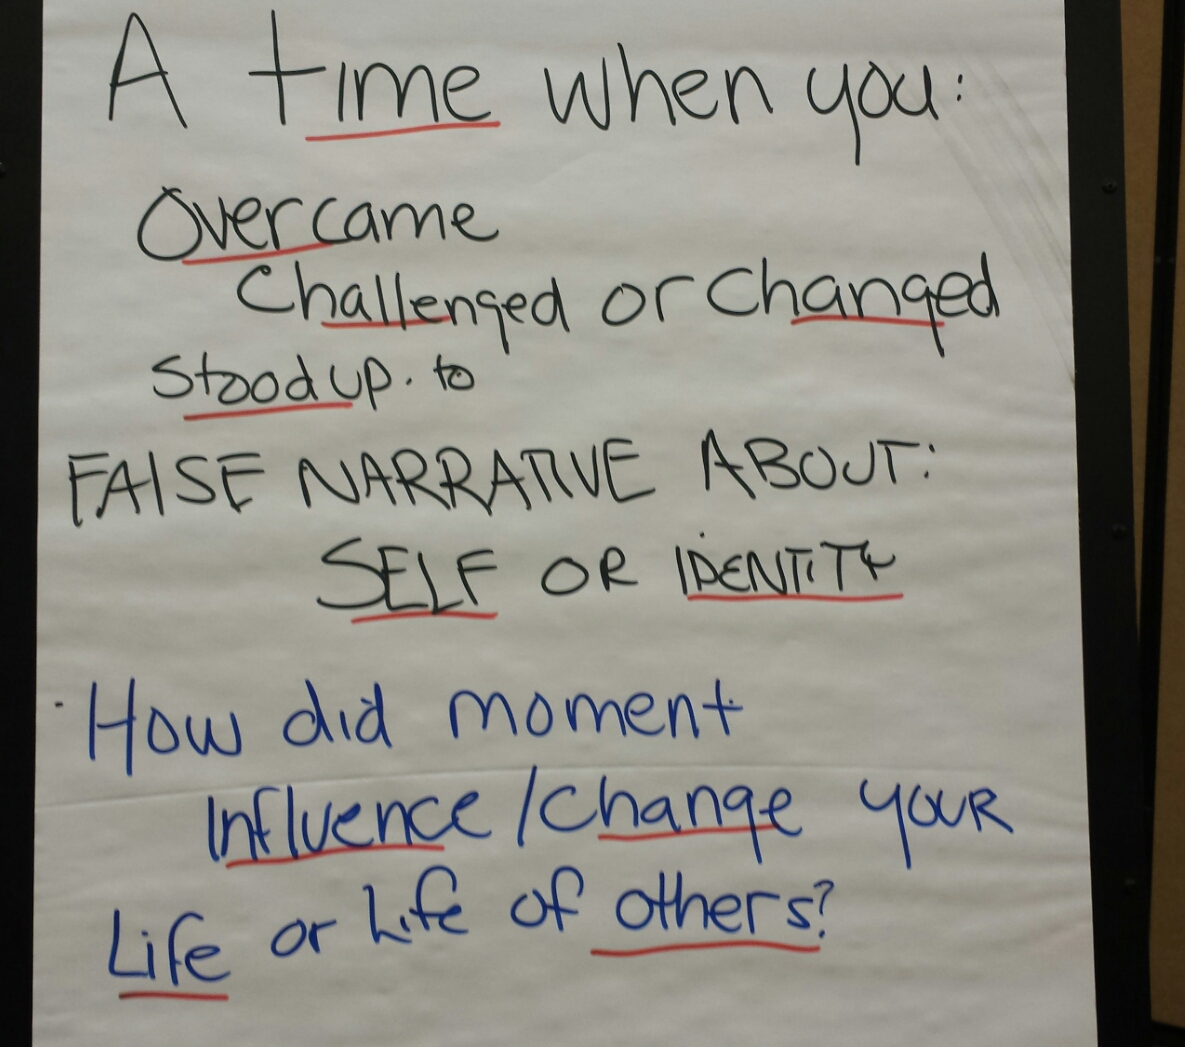 A time when you:
Overcame
Challenged or Changed
Stood up. to
FAlSE NARRATIVE ABOUT:
SELF OR IDENTITY
How did moment
Influence/Change your
Life or Life of others?